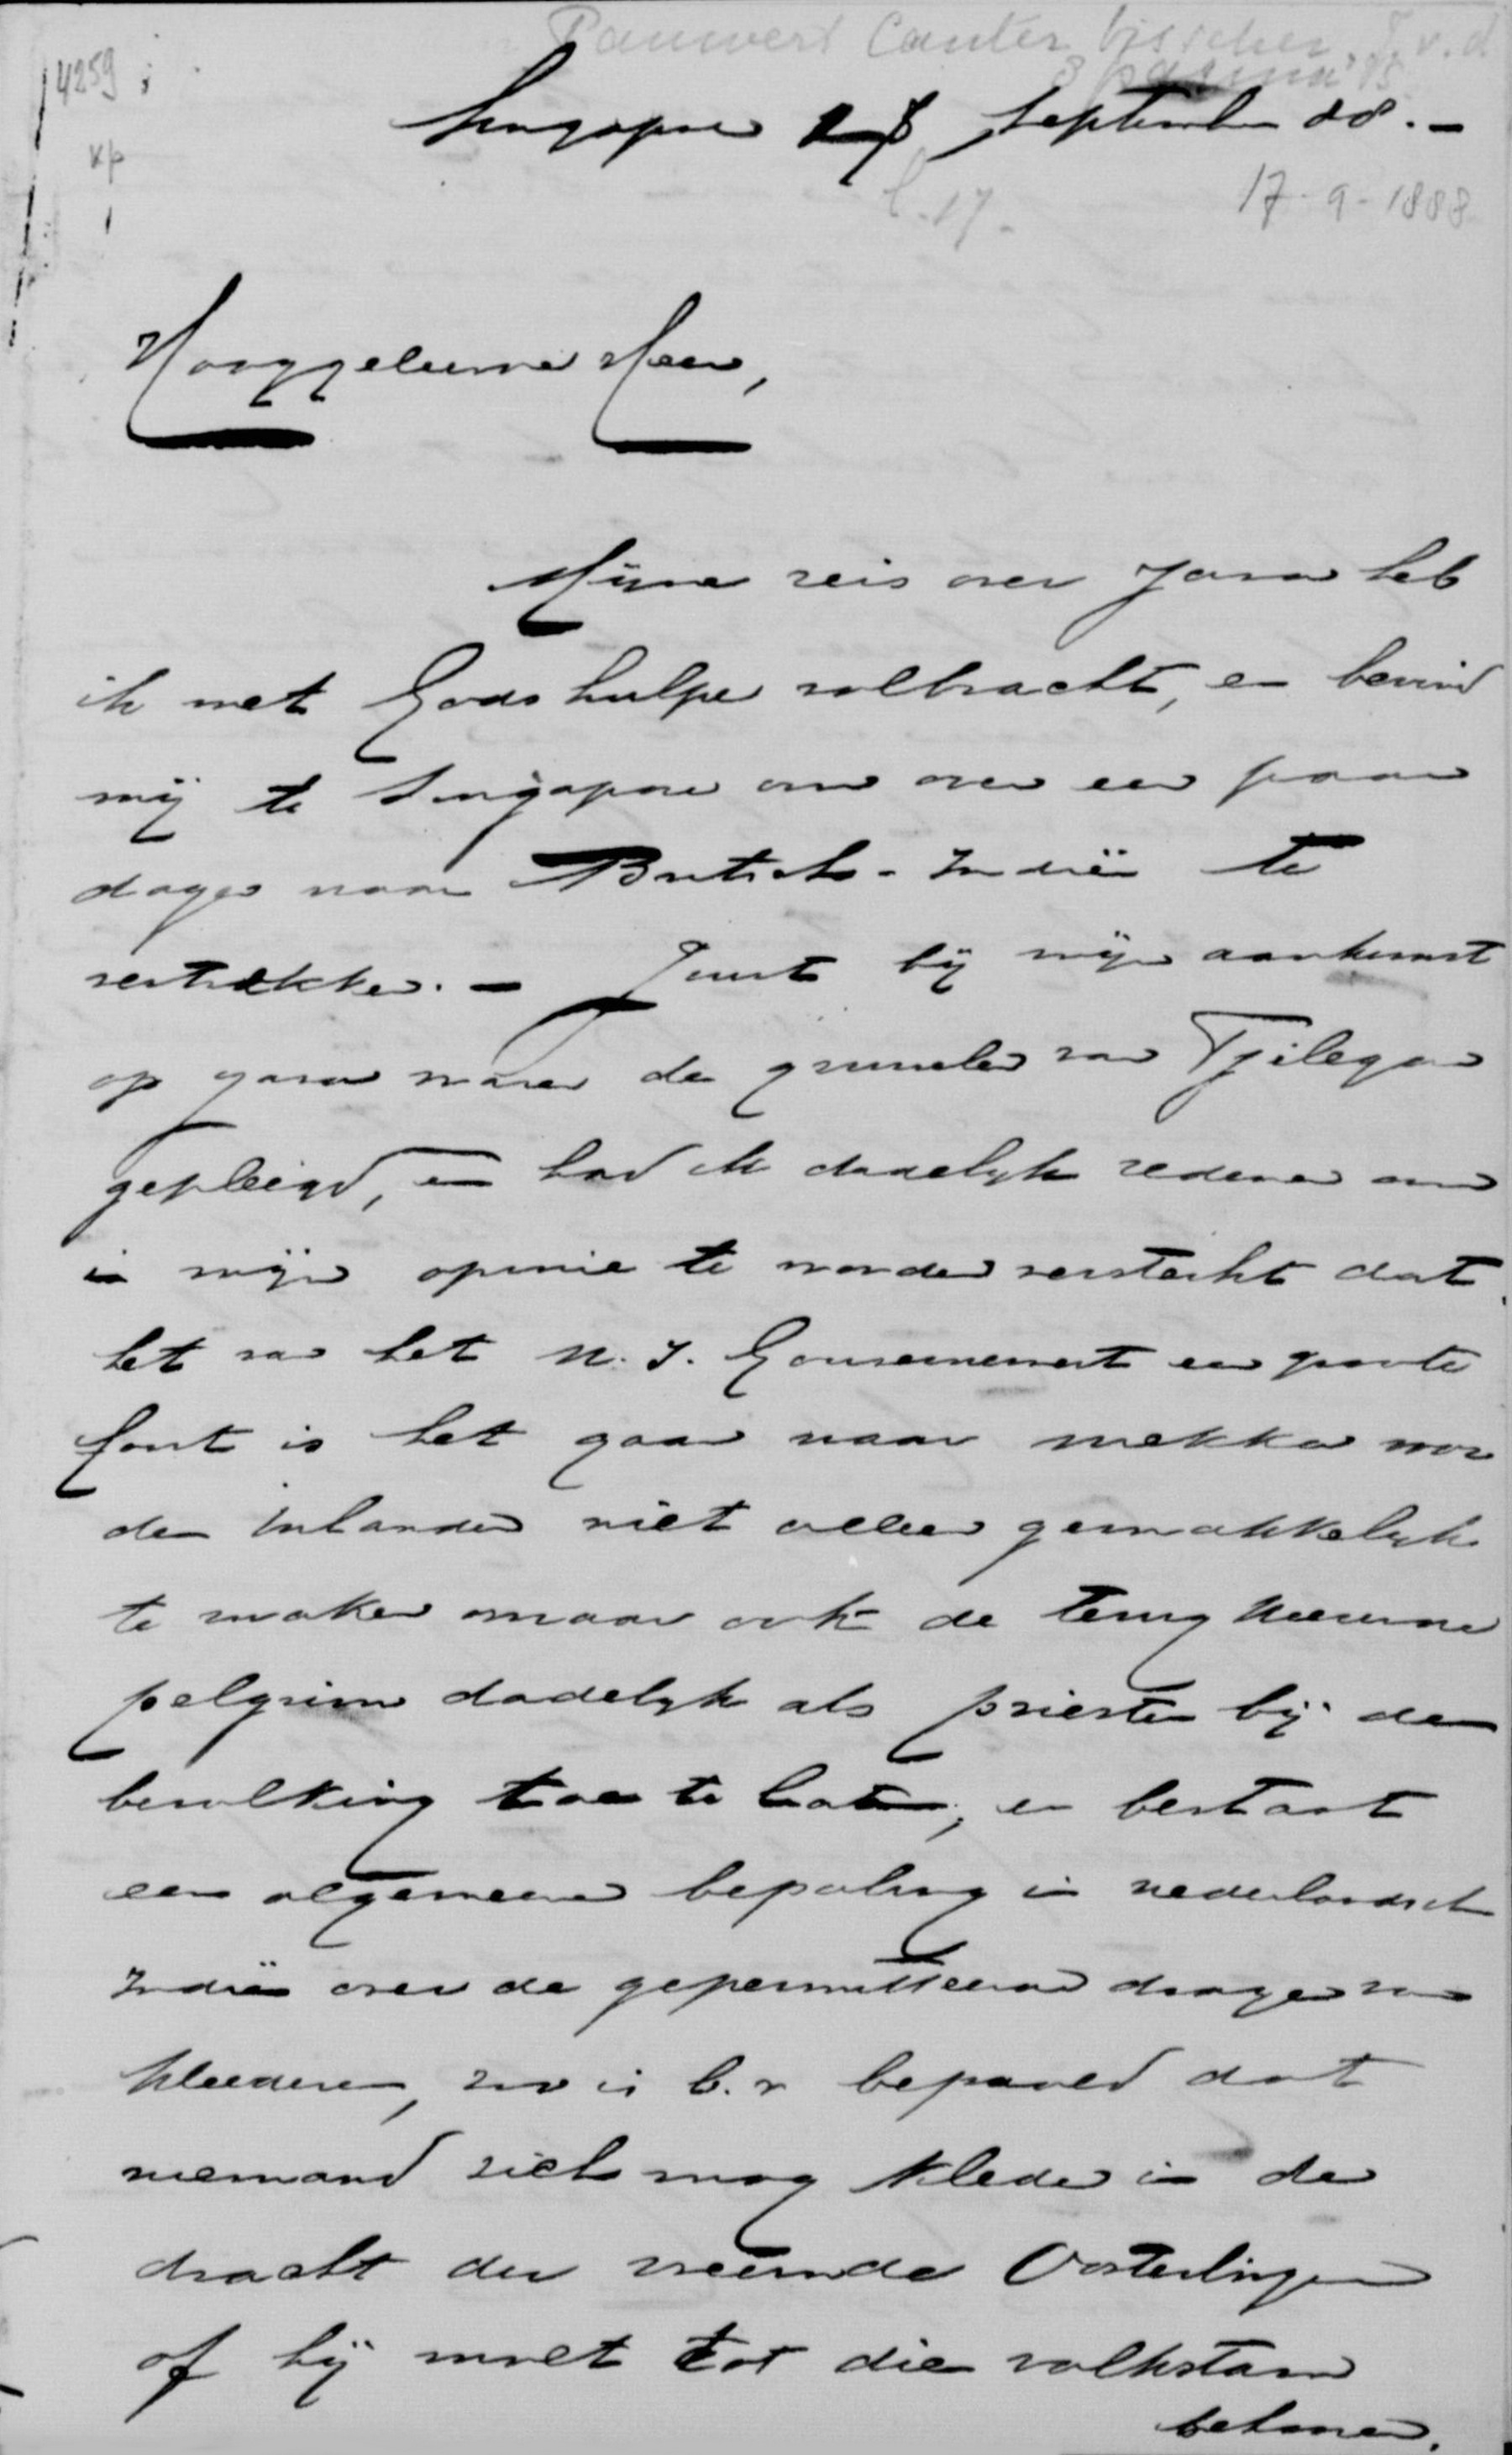 Pauwert Canter Visscher, J. v. d
4259
xp
1
Singapore 18 September 88.-
l. 17.
17-9-1888
Hooggeleerde Heer,
Mijne reis over Java heb
ik met Gods hulpe volbracht, en bevind
mij te Singapore om over een paar
dagen naar Britsch-Indië te
vertrekken. - Juist bij mijn aankomst
op Java waren de gruwelen van Tjilegon
gepleegd, en had ik dadelyk redenen om
in mijn opinie te worden versterkt dat
het van het N. I. Gouvernement een groote
fout is het gaan naar Mekka voor
den inlander niet alleen gemakkelyk
te maken maar ook de terug keerende
pelgrim dadelyk als priester bij de
bevolking toe te laten; er bestaat
een algemeene bepaling in Nederlandsch
Indië over de gepermitteerde dragen van
kleederen, zoo is b.v. bepaald dat
niemand zich mag kleden in de
dracht der vreemde Oosterlingen
of hij moet tot die volkstam
behooren.